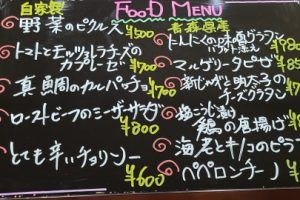 自家製
FOOD MENU
野菜のピクルス ¥500
トマトとモッツァレラチーズの
カプレーゼ ¥700
真鯛のカルパッチョ ¥700
ローストビーフのシーザーサラダ
¥800
とても辛いチョリソー
¥600
青森県産
にんにくの
バゲット添え ¥480
マルゲリータピザ
¥850
新じゃがと明太子の
チーズグラタン
¥700
塩こうじ漬け
鶏の唐揚げ
海老とキノコのピラフ
ペペロンチーノ